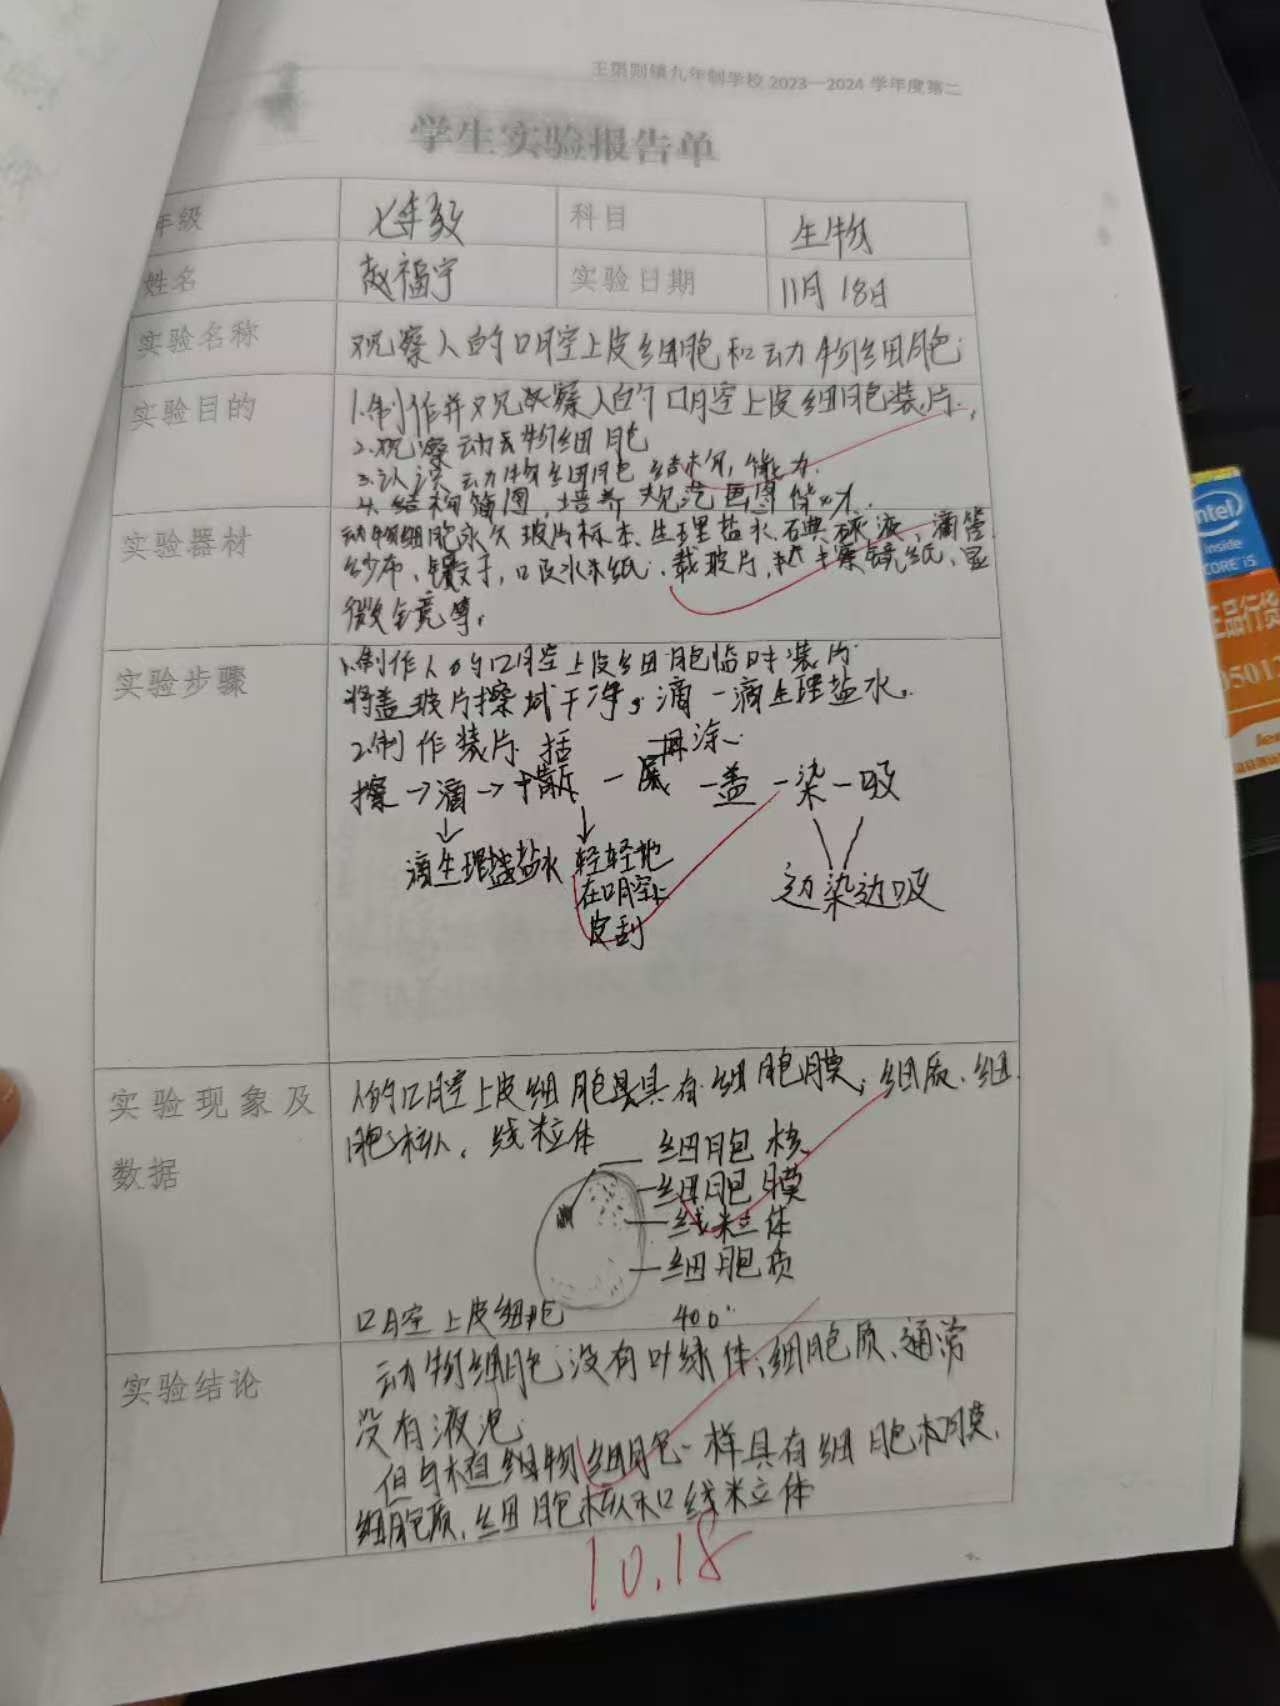 王第则镇九年制学校 2023—2024 学年度第二
学生实验报告单
年级 七年级 科目 生物
姓名 赵福宇 实验日期 11月18日
实验名称 观察人的口腔上皮细胞和动物细胞
实验目的 1.制作并观察人的口腔上皮细胞装片.
2.观察动物细胞
3.认识动物细胞结构,能力.
4.结构简图,培养规范画图能力.
实验器材 动物细胞永久玻片标本、生理盐水、碘液、滴管
纱布、镊子,吸水纸、载玻片,擦镜纸、显
微镜等.
实验步骤 1.制作人的口腔上皮细胞临时装片
将盖玻片擦拭干净,滴一滴生理盐水.
2.制作装片 括 再涂
擦→滴→ 一 展 一盖一染一吸
滴生理盐水 轻轻地
在口腔上
皮刮
边染边吸
实验现象及
数据
人的口腔上皮细胞具有细胞膜,细质、细
胞核、线粒体
细胞核
细胞膜
线粒体
细胞质
口腔上皮细胞 400
实验结论 动物细胞没有叶绿体、细胞质、通常
没有液泡
但与植物细胞一样具有细胞膜,
细胞质,细胞核和线粒体
10.18
intel
inside
CORE i5
正品行货